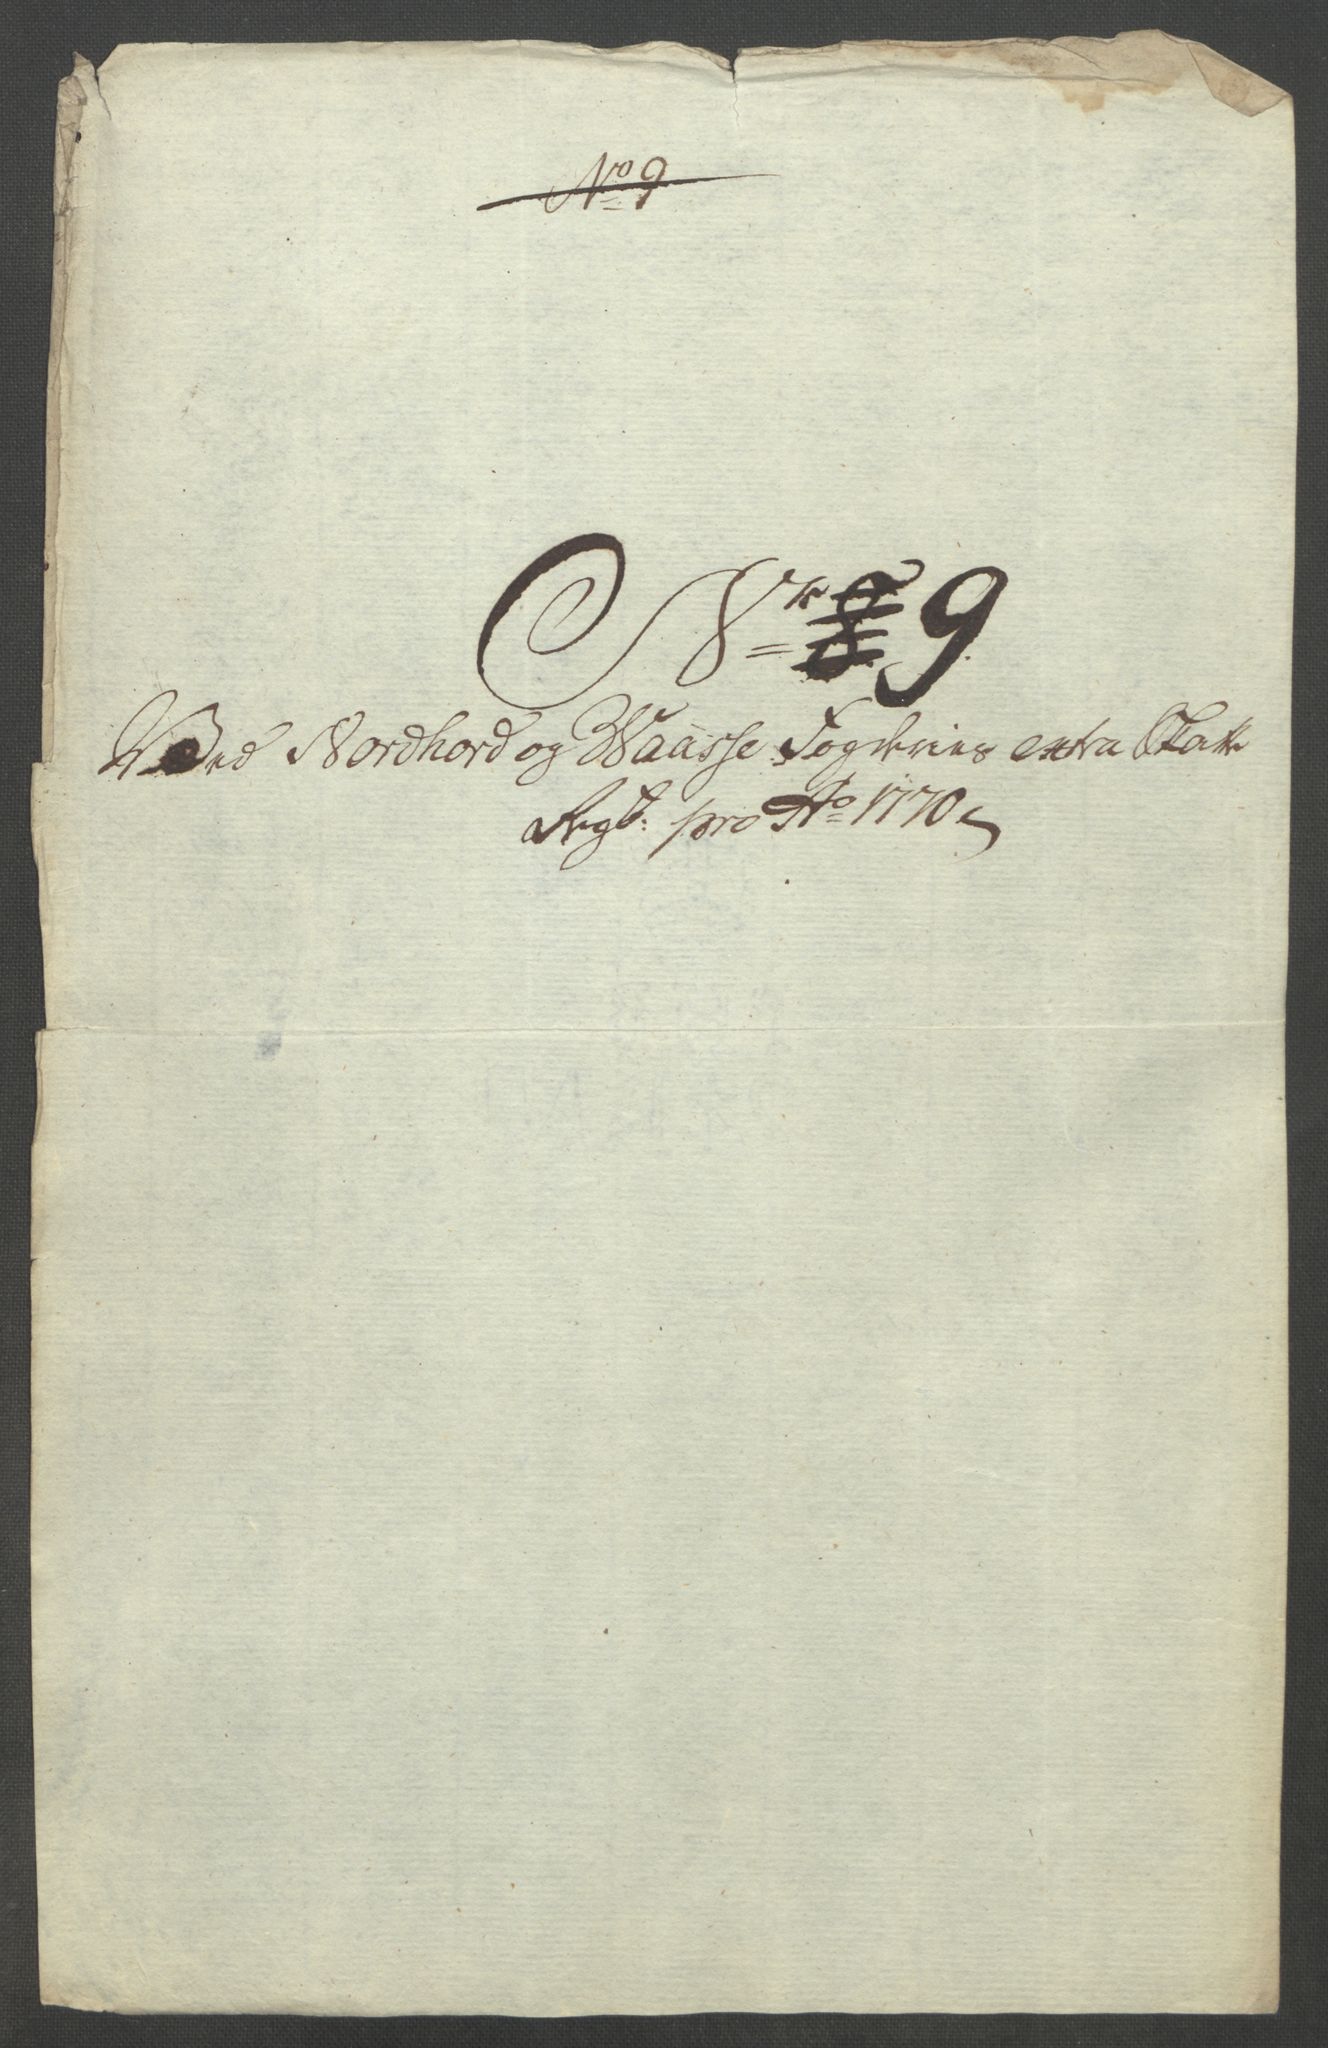 No 9
Nr 9
Ved Nordhord og Waasse Fogderies extra Skatte
Regb: pro Ao 1770